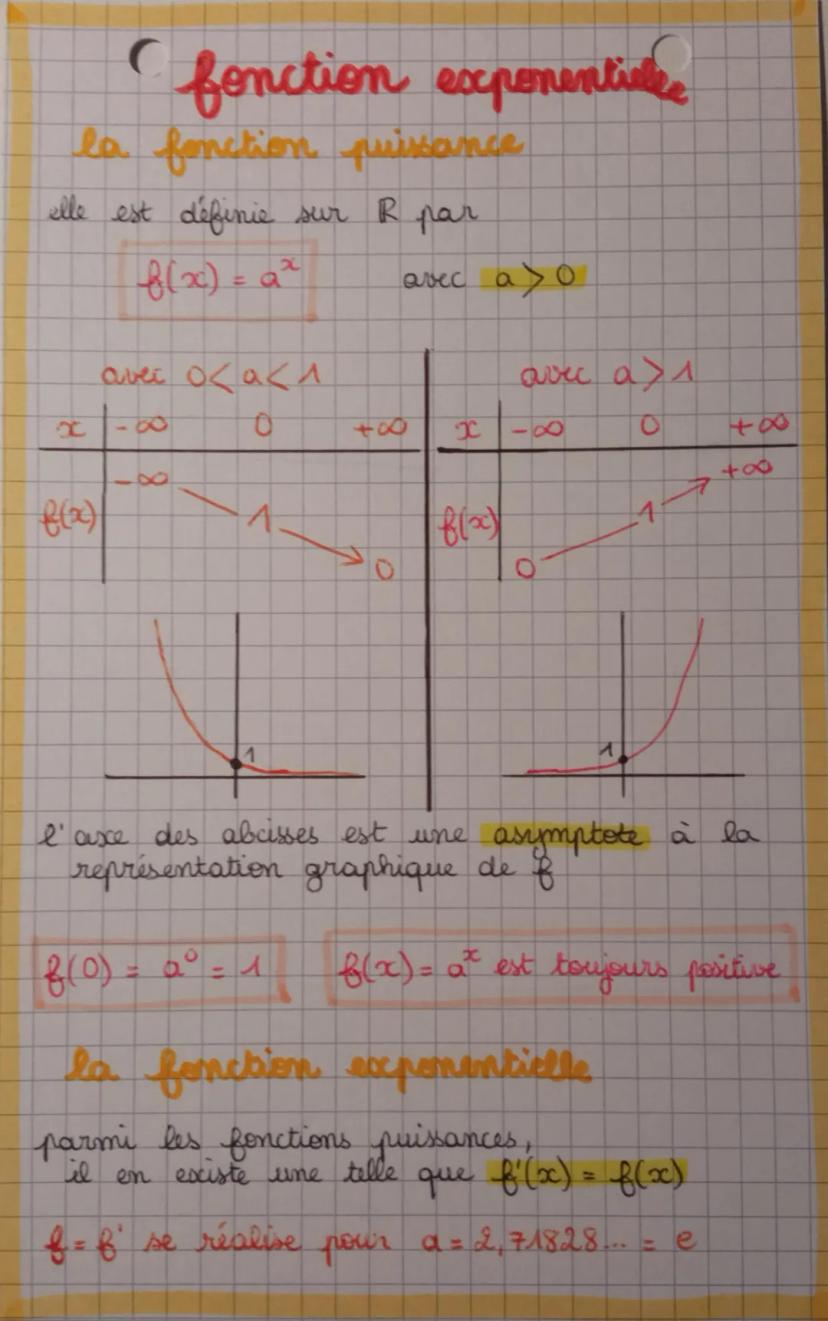 fonction exponentielle
la fonction puissance
elle est définie sur ℝ par
f(x) = aˣ avec a > 0
avec 0 < a < 1
x -∞ 0 +∞
f(x) -∞ 1 0
1
avec a > 1
x -∞ 0 +∞
f(x) 0 1 +∞
1
l'axe des abcisses est une asymptote à la
représentation graphique de f
f(0) = a⁰ = 1 f(x) = aˣ est toujours positive
la fonction exponentielle
parmi les fonctions puissances,
il en existe une telle que f'(x) = f(x)
f = f' se réalise pour a = 2,71828... = e